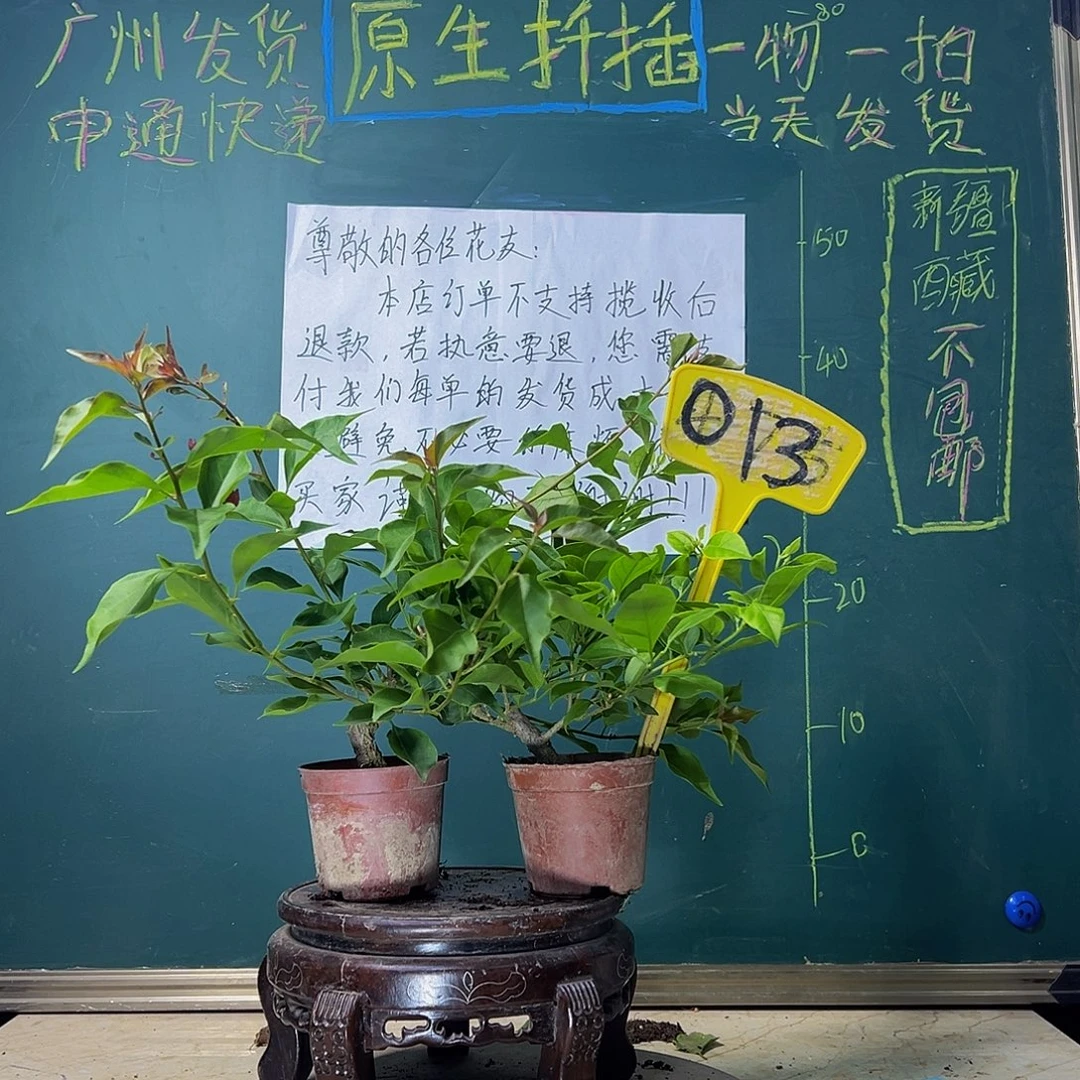 广州发货
原生扦插
一物一拍
申通快递
当天发货
新疆
西藏
不包邮
尊敬的各位花友:
本店订单不支持揽收后
退款,若执意要退,您需
付我们每单的发货成
避免不必要的
买家谨
!!
013
50
40
20
10
0